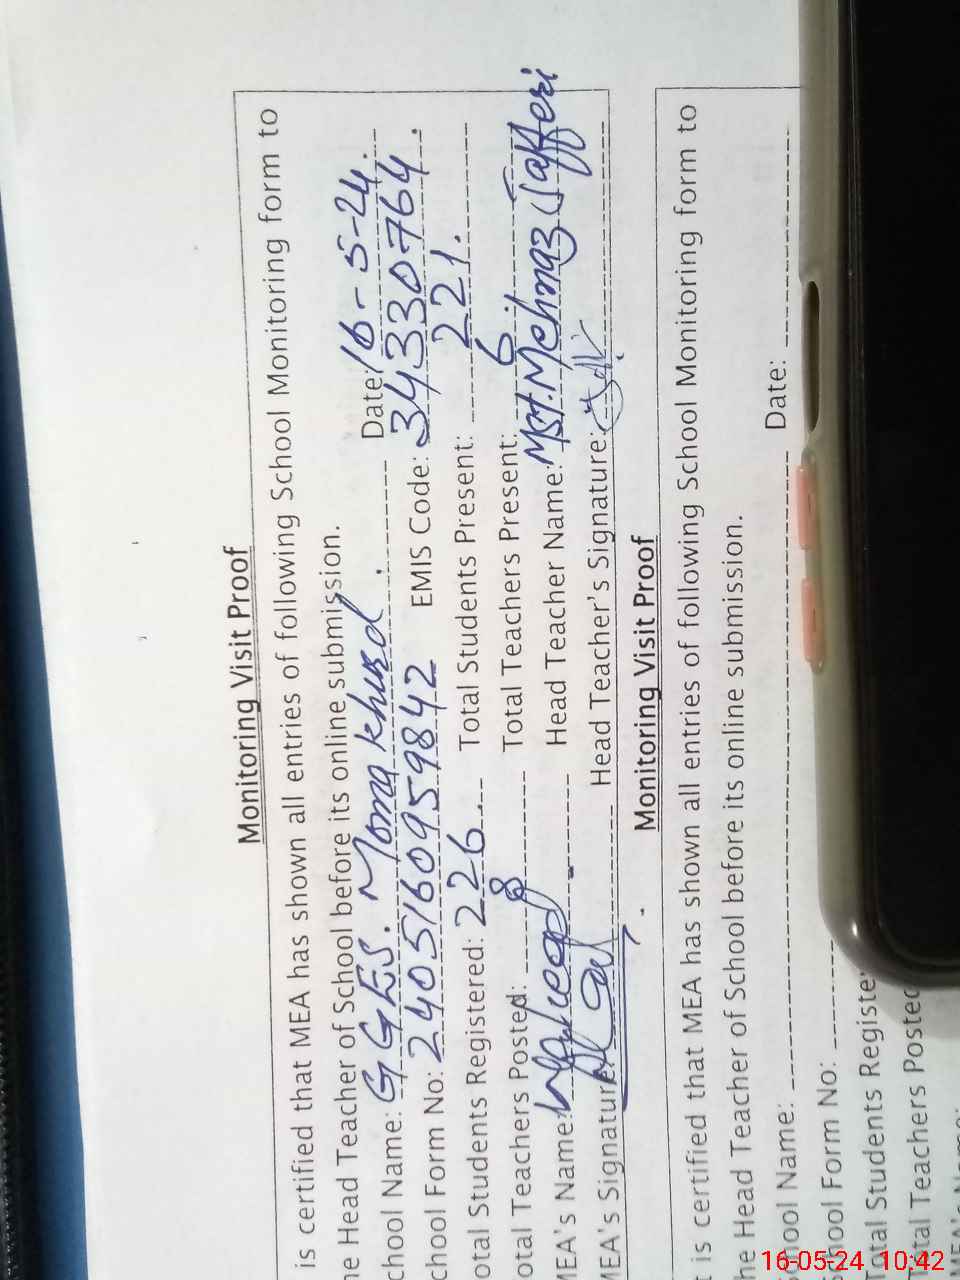 Monitoring Visit Proof
is certified that MEA has shown all entries of following School Monitoring form to
he Head Teacher of School before its online submission.
chool Name: GGES. Moma khurd. Date: 16-5-24.
chool Form No: 240516095 9842 EMIS Code: 34330764.
otal Students Registered: 226 Total Students Present: 221.
otal Teachers Posted: 8 Total Teachers Present: 6.
MEA's Name: Waheed Head Teacher Name: Mst. Mehnaz Jafferi
MEA's Signature: Head Teacher's Signature:
Monitoring Visit Proof
t is certified that MEA has shown all entries of following School Monitoring form to
he Head Teacher of School before its online submission.
chool Name: Date:
School Form No:
Total Students Registe
Total Teachers Posted
MEA's Name:
16-05-24 10:42